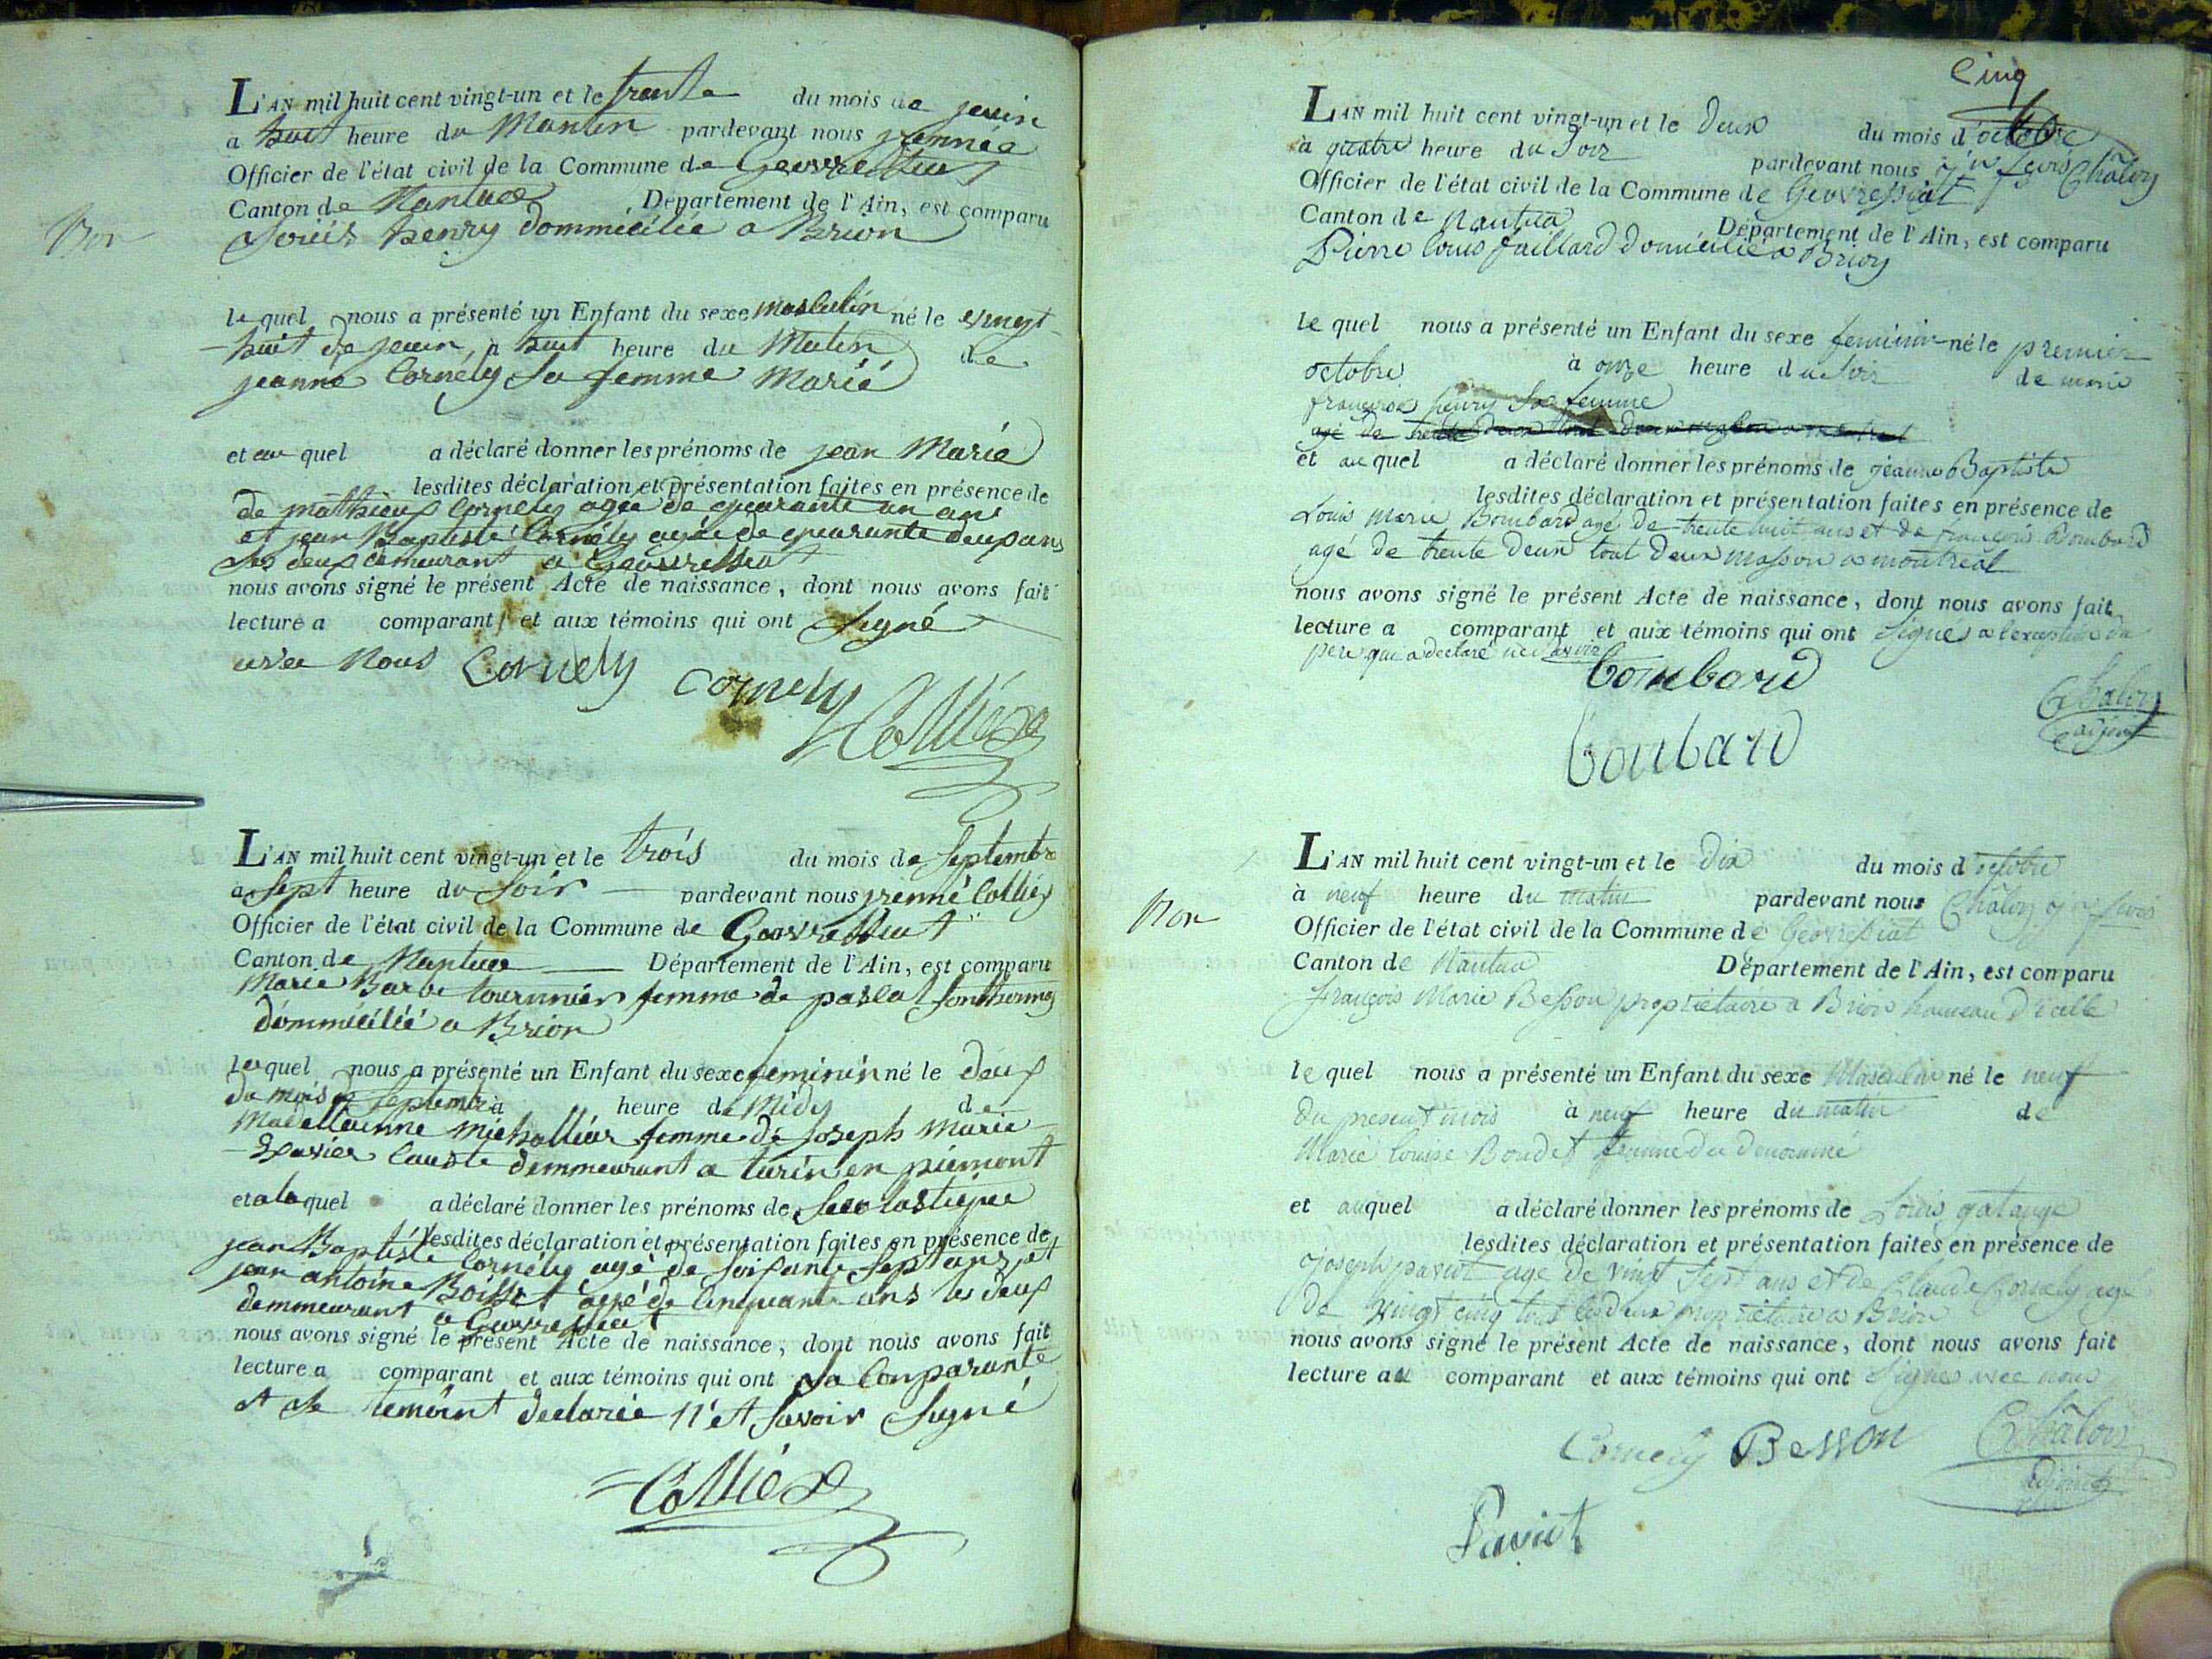 L'AN mil huit cent vingt-un et le trente du mois de jeuin
a huit heure du Mantin pardevant nous jrennée
Officier de l'état civil de la Commune de Geovressiat
Canton de Nantua Département de l'Ain, est comparu
Bon
Louis henry dommicilié a Brion
le quel nous a présenté un Enfant du sexe masculin né le vingt
huit de jeuin, à huit heure du Matin de
jeanne Cornely sa femme Marié
et au quel a déclaré donner les prénoms de jean Marie
lesdites déclaration et présentation faites en présence de
de mathieux Cornely agée de quarante un ans
et jean Baptiste Cornély agée de quarante deux ans
les deux demeurant a Geovressiat
nous avons signé le présent Acte de naissance, dont nous avons fait
lecture a comparant et aux témoins qui ont Signé
avec Nous Cornely Cornely
Collier
L'AN mil huit cent vingt-un et le trois du mois de Septembre
a Sept heure du Soir pardevant nous jrenné Collier
Officier de l'état civil de la Commune de Geovressiat
Canton de Nantua Département de l'Ain, est comparu
Marie Barbe tournnier femme de pascal
dommicilié a Brion
laquel nous a présenté un Enfant du sexe feminin né le deux
du mois de Septembre à heure de Midy de
Madellainne michallier femme de Joseph Marie
Xavier demmeurant a turin en piémont
et a laquel a déclaré donner les prénoms de Scolastique
lesdites déclaration et présentation faites en présence de
jean Baptiste Cornély agé de soixante Sept ans et
jean antoine Boisset agé de Cinquante ans les deux
demmeurant a Geovressiat
nous avons signé le présent Acte de naissance, dont nous avons fait
lecture a comparant et aux témoins qui ont La Conparante
et le temoint declarée n'et Savoir Signé
Collier
Cinq
L'AN mil huit cent vingt-un et le Deux du mois d'octobre
à quatre heure du Soir pardevant nous Châlon
Officier de l'état civil de la Commune de Geovressiat
Canton de Nantua Département de l'Ain, est comparu
Pierre Louis Jaillard Domicilié a Brion
le quel nous a présenté un Enfant du sexe feminin né le premier
octobre à onze heure du Soir de marie
françoise henry Sa femme
agé de trente deux tout deux
et au quel a déclaré donner les prénoms de jeanne Baptiste
lesdites déclaration et présentation faites en présence de
Louis Marie Bombard agé de trente huit ans et de françois Bombard
agé de trente deux tout deux masson a montréal
nous avons signé le présent Acte de naissance, dont nous avons fait
lecture a comparant et aux témoins qui ont signés a l'exception du
pere qui a declaré ne savoir
bombard
Châlon
adjoint
boubard
L'AN mil huit cent vingt-un et le Dix du mois d'octobre
à neuf heure du matin pardevant nous Châlon
Bon
Officier de l'état civil de la Commune de Geovressiat
Canton de Nantua Département de l'Ain, est comparu
françois Marie Besson propriétaire a Brion hameau d'
le quel nous a présenté un Enfant du sexe Masculin né le neuf
du present mois à neuf heure du matin de
Marie Louise Boudet femme du denommé
et auquel a déclaré donner les prénoms de Louis
lesdites déclaration et présentation faites en présence de
joseph paviot age de vingt Sept ans et de Claude Cornely age
de vingt cinq tout les deux propriétaire a Brion
nous avons signé le présent Acte de naissance, dont nous avons fait
lecture au comparant et aux témoins qui ont signes avec nous
Cornely Besson Châlon
adjoint
Paviot